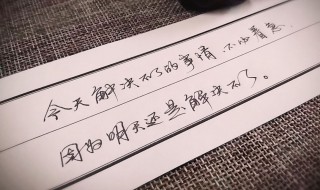 今天解决不了的事情，不必着急。
因为明天还是解决不了。